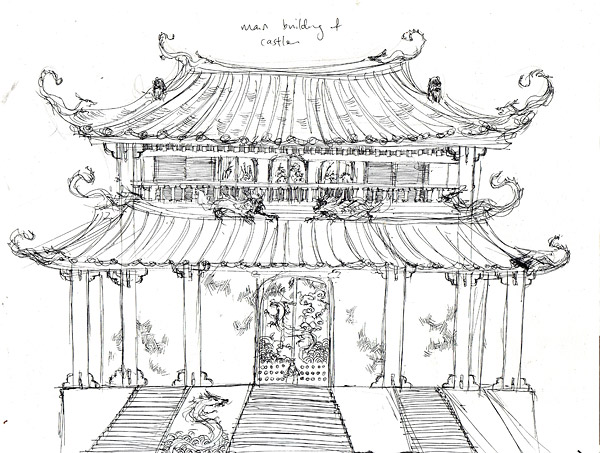 main building of
castle